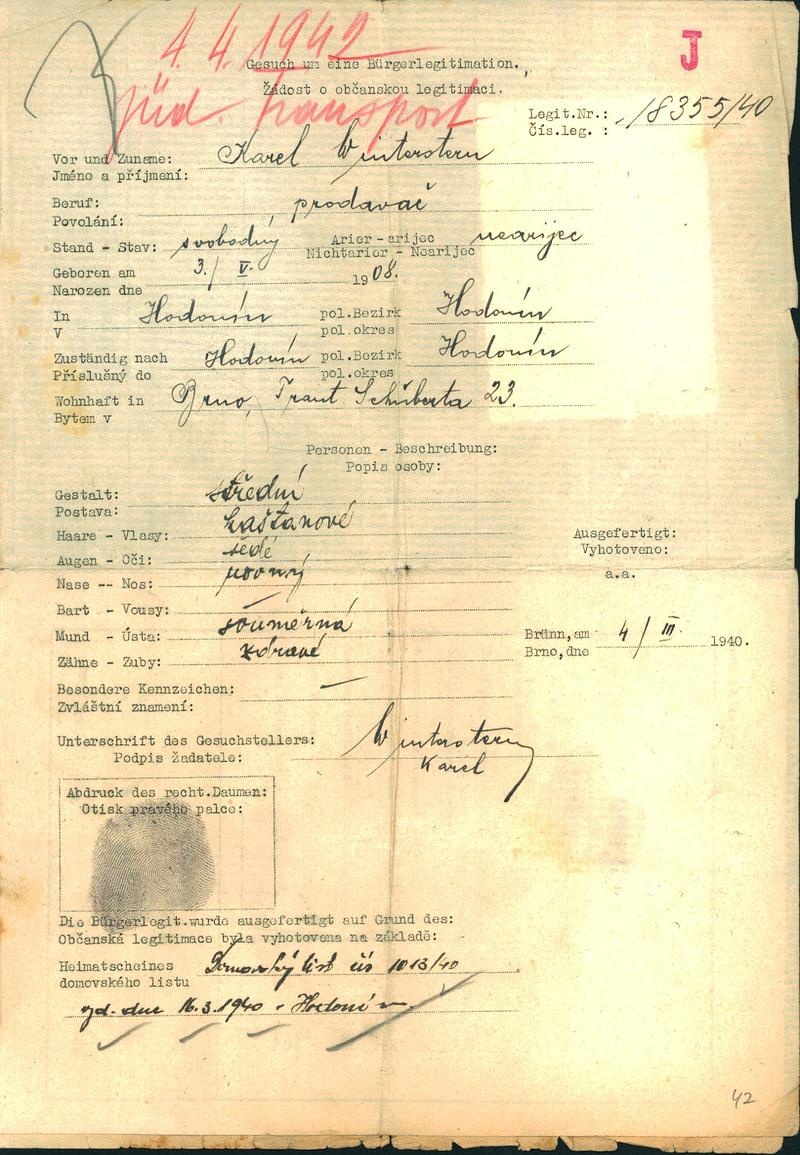 4. 4. 1942
J
Gesuch um eine Bürgerlegitimation.
Žádost o občanskou legitimaci.
jüd. transport
Legit.Nr.: 18355/40
Čís.leg. :
Vor und Zuname: Karel Winterstern
Jméno a příjmení:
Beruf: prodavač
Povolání:
Stand - Stav: svobodný Arier - arijec nearijec
Nichtarier - Nearijec
Geboren am 3./ V. 1908.
Narozen dne
In Hodonín pol.Bezirk Hodonín
V pol.okres
Zuständig nach Hodonín pol.Bezirk Hodonín
Příslušný do pol.okres
Wohnhaft in Brno, Frant. Schuberta 23.
Bytem v
Personen - Beschreibung:
Popis osoby:
Gestalt: střední
Postava:
Haare - Vlasy: kaštanové
Augen - Oči: šedé
Nase -- Nos: rovný
Bart - Vousy: —
Mund - Ústa: souměrná
Zähne - Zuby: zdravé
Ausgefertigt:
Vyhotoveno:
a.a.
Brünn,am 4/ III. 1940.
Brno,dne
Besondere Kennzeichen: —
Zvláštní znamení:
Unterschrift des Gesuchstellers: Winterstern
Podpis žadatele: Karel
Abdruck des recht.Daumen:
Otisk pravého palce:
Die Bürgerlegit.wurde ausgefertigt auf Grund des:
Občanská legitimace byla vyhotovena na základě:
Heimatscheines Domovský list čís 1013/40
domovského listu
vyd. dne 16.3.1940 v Hodoníně
42